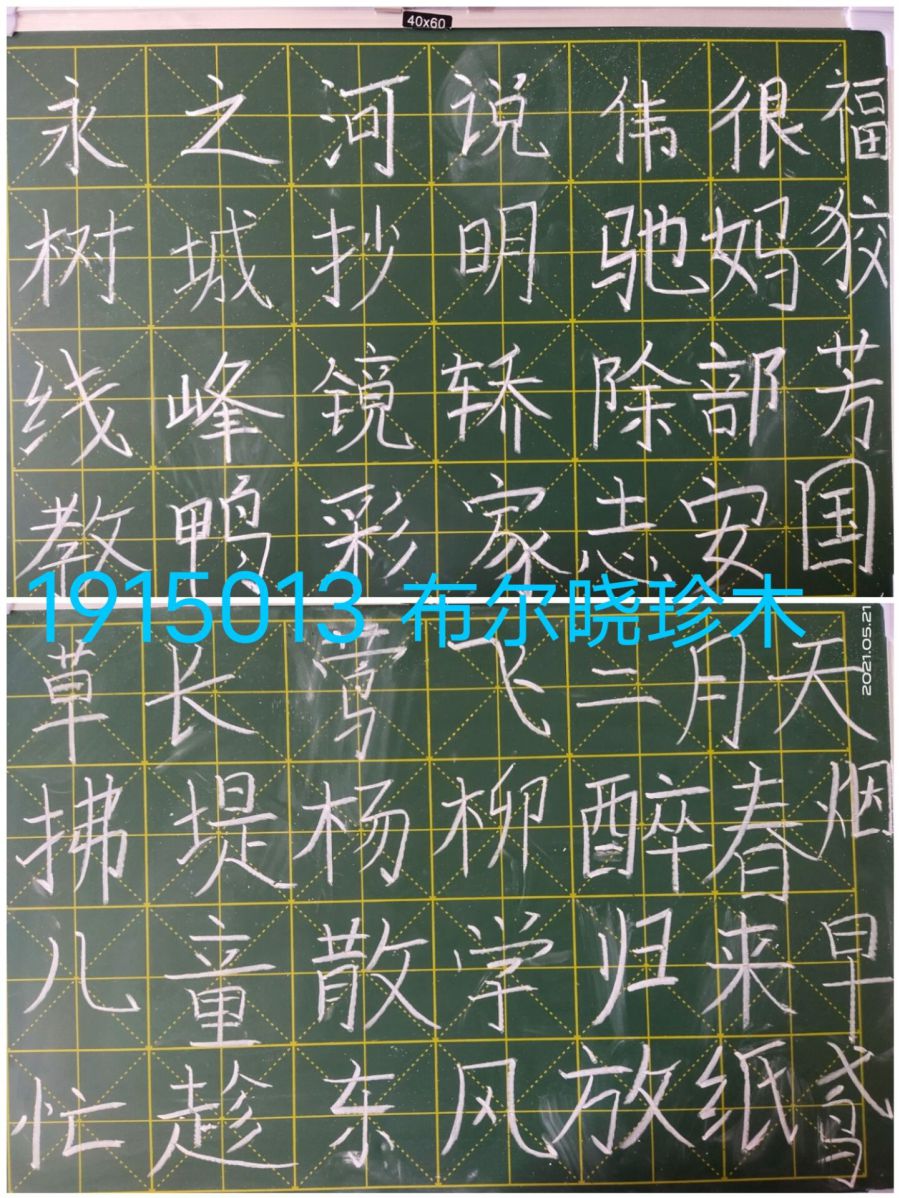 40x60
永之河说伟很福
树城抄明驰妈狡
线峰镜轿除部芳
教鸭彩家志安国
1915013 布尔晓珍木
2021.05.21
草长莺飞二月天
拂堤杨柳醉春烟
儿童散学归来早
忙趁东风放纸鸢